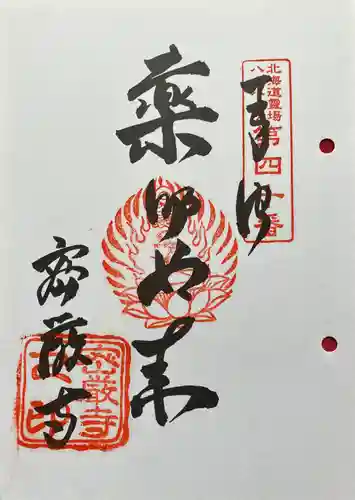 奉拝
北海道霊場
八十八ヶ所
第四十番
薬師如来
密厳寺
密厳寺